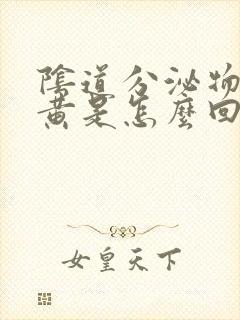 陰道分泌物
黃是怎麼回
女皇天下